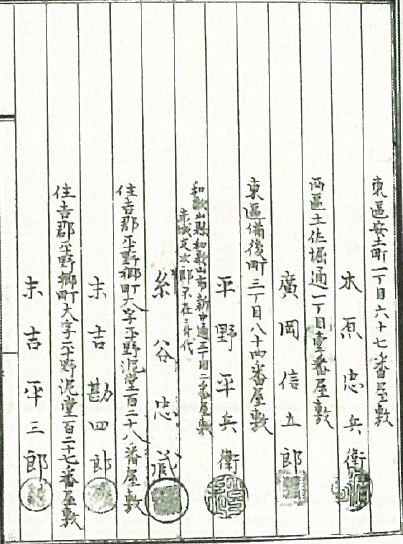 東區安土町一丁目六十七番屋敷
木原忠兵衛
西區土佐堀通一丁目壹番屋敷
廣岡信五郎
東區備後町三丁目八十四番屋敷
平野平兵衛
和歌山縣和歌山市新中通三丁目二番屋敷
不在ニ付代
糸谷忠藏
住吉郡平野郷町大字平野泥堂百二十八番屋敷
末吉勘四郎
住吉郡平野郷町大字平野泥堂百二十七番屋敷
末吉平三郎